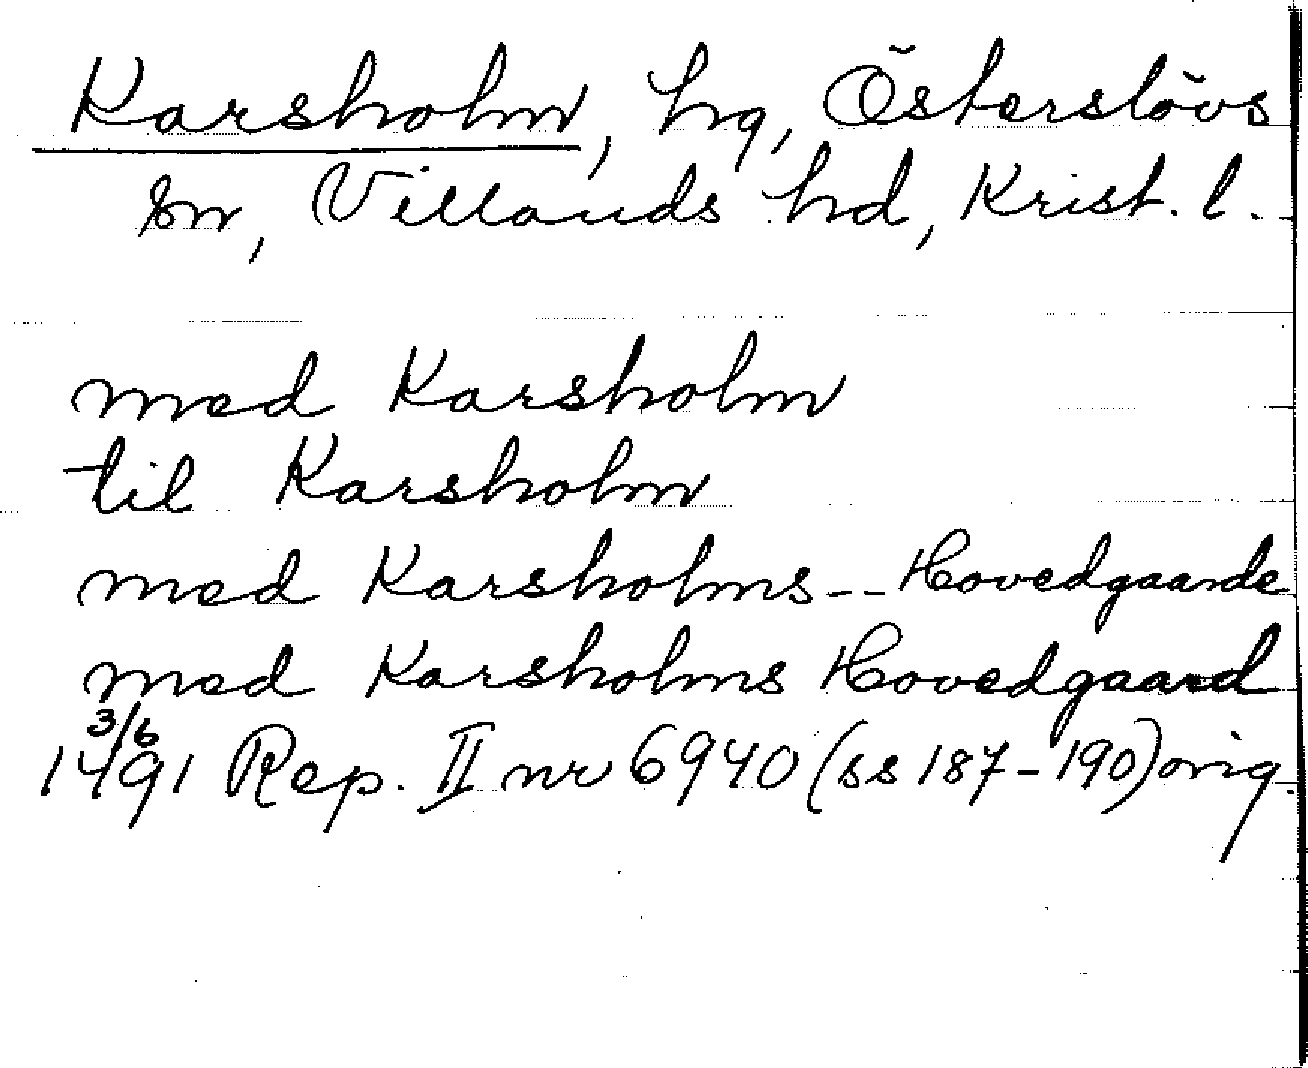 Karsholm, hg, Österslövs
sn, Villands hd, Krist. l.
med Karsholm
til Karsholm
med Karsholms -- Hovedgaarde
med Karsholms Hovedgaard
14 3/6 91 Rep. II nr 6940 (ss 187-190) orig.